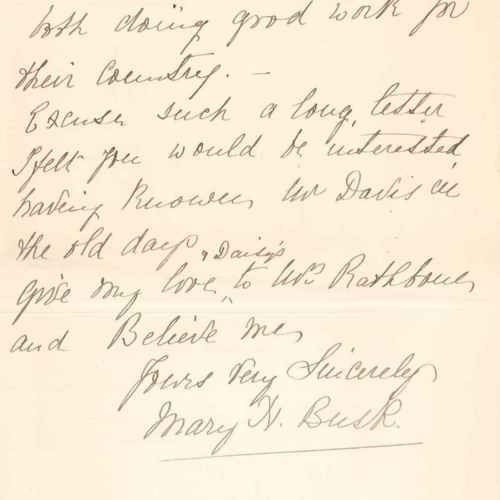 both doing good work for
their Country. —
Excuse such a long letter
I felt you would be interested
having Known Mr Davis in
the old days
"Daisy's
give my love, to Mrs Rathbone,
and Believe me,
Yours Very Sincerely
Mary H. Busk.